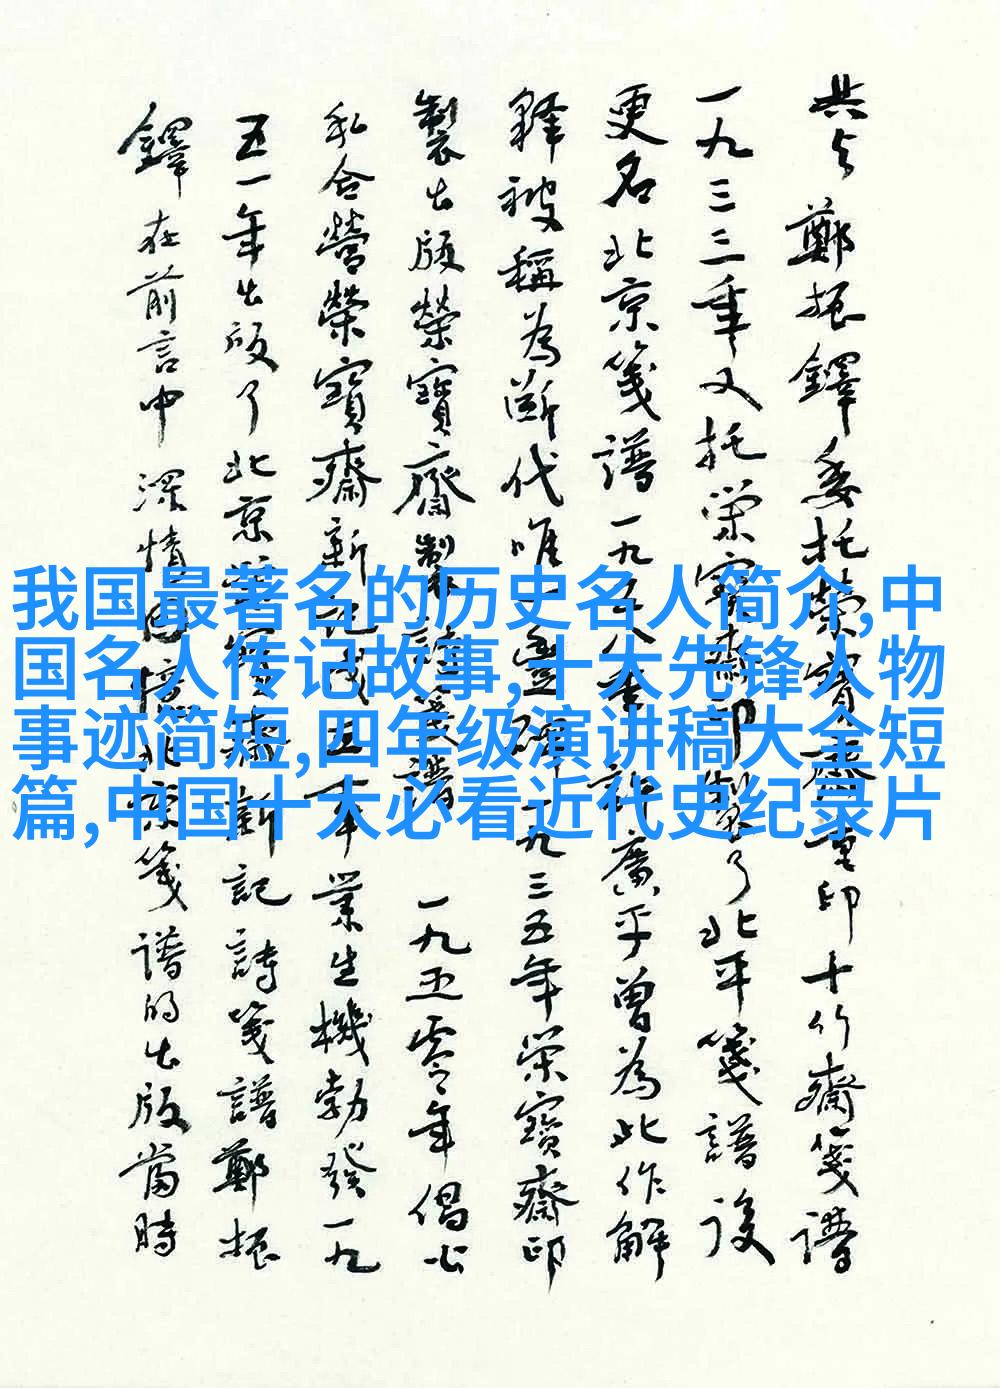 共与鄭振鐸委托榮寶齋重印十竹齋箋譜
一九三三年又托榮寶齋印製了北平箋譜後
更名北京箋譜一九五八年許廣平曾為此作解
釋被稱為斷代唯一豐碑一九三五年榮寶齋印
製出版榮寶齋製詩箋譜一九五零年倡公
私合營榮寶齋新記成立本業生機勃發一九
五一年出版了北京榮寶齋新記詩箋譜鄭振
鐸在前言中深情回憶北京箋譜的出版當時
我国最著名的历史名人简介,中
国名人传记故事,十大先锋人物
事迹简短,四年级演讲稿大全短
篇,中国十大必看近代史纪录片